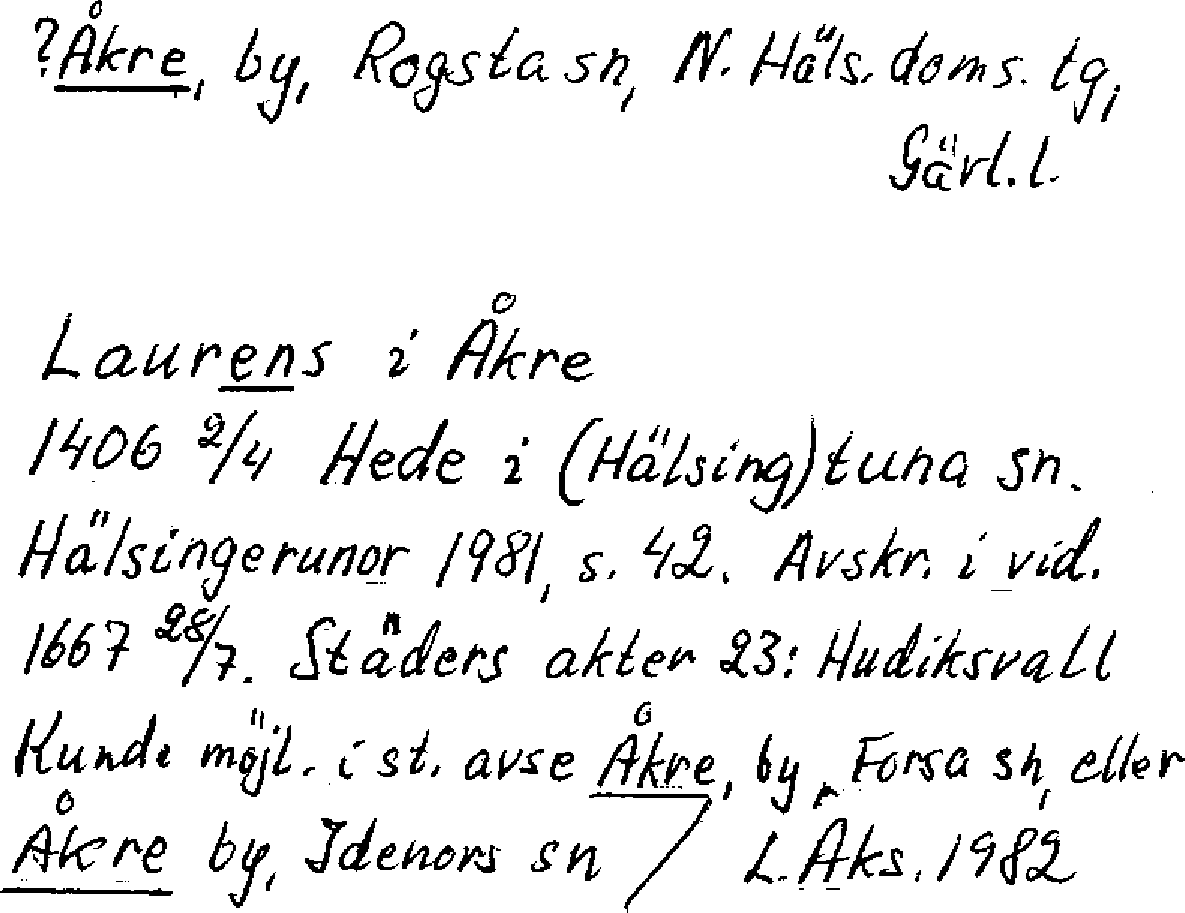 ?Åkre, by, Rogsta sn, N. Häls. doms. tg,
Gävl. l.
Laurens i Åkre
1406 2/4 Hede i (Hälsing)tuna sn.
Hälsingerunor 1981, s. 42. Avskr. i vid.
1667 28/7. Städers akter 23: Hudiksvall
Kunde möjl. i st. avse Åkre, by, Forsa sn, eller
Åkre by, Idenors sn / L. Åks. 1982